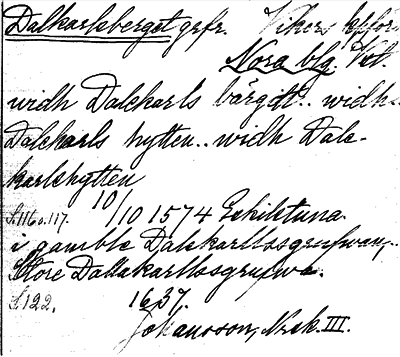 Dalkarlsberget gfr. Vikers kpfor.
Nora blg. Vst.
widh Dalekarls bärgit.. widh
Dalekarls hytten.. widh Dale-
karlshytten
S. 116 o. 117. 10/10 1574 Eskilstuna.
i gamble Dalekarllssgrufwan,..
Store Dallakarllssgrufwa.
S. 122. 1637.
Johansson, Norask. III.